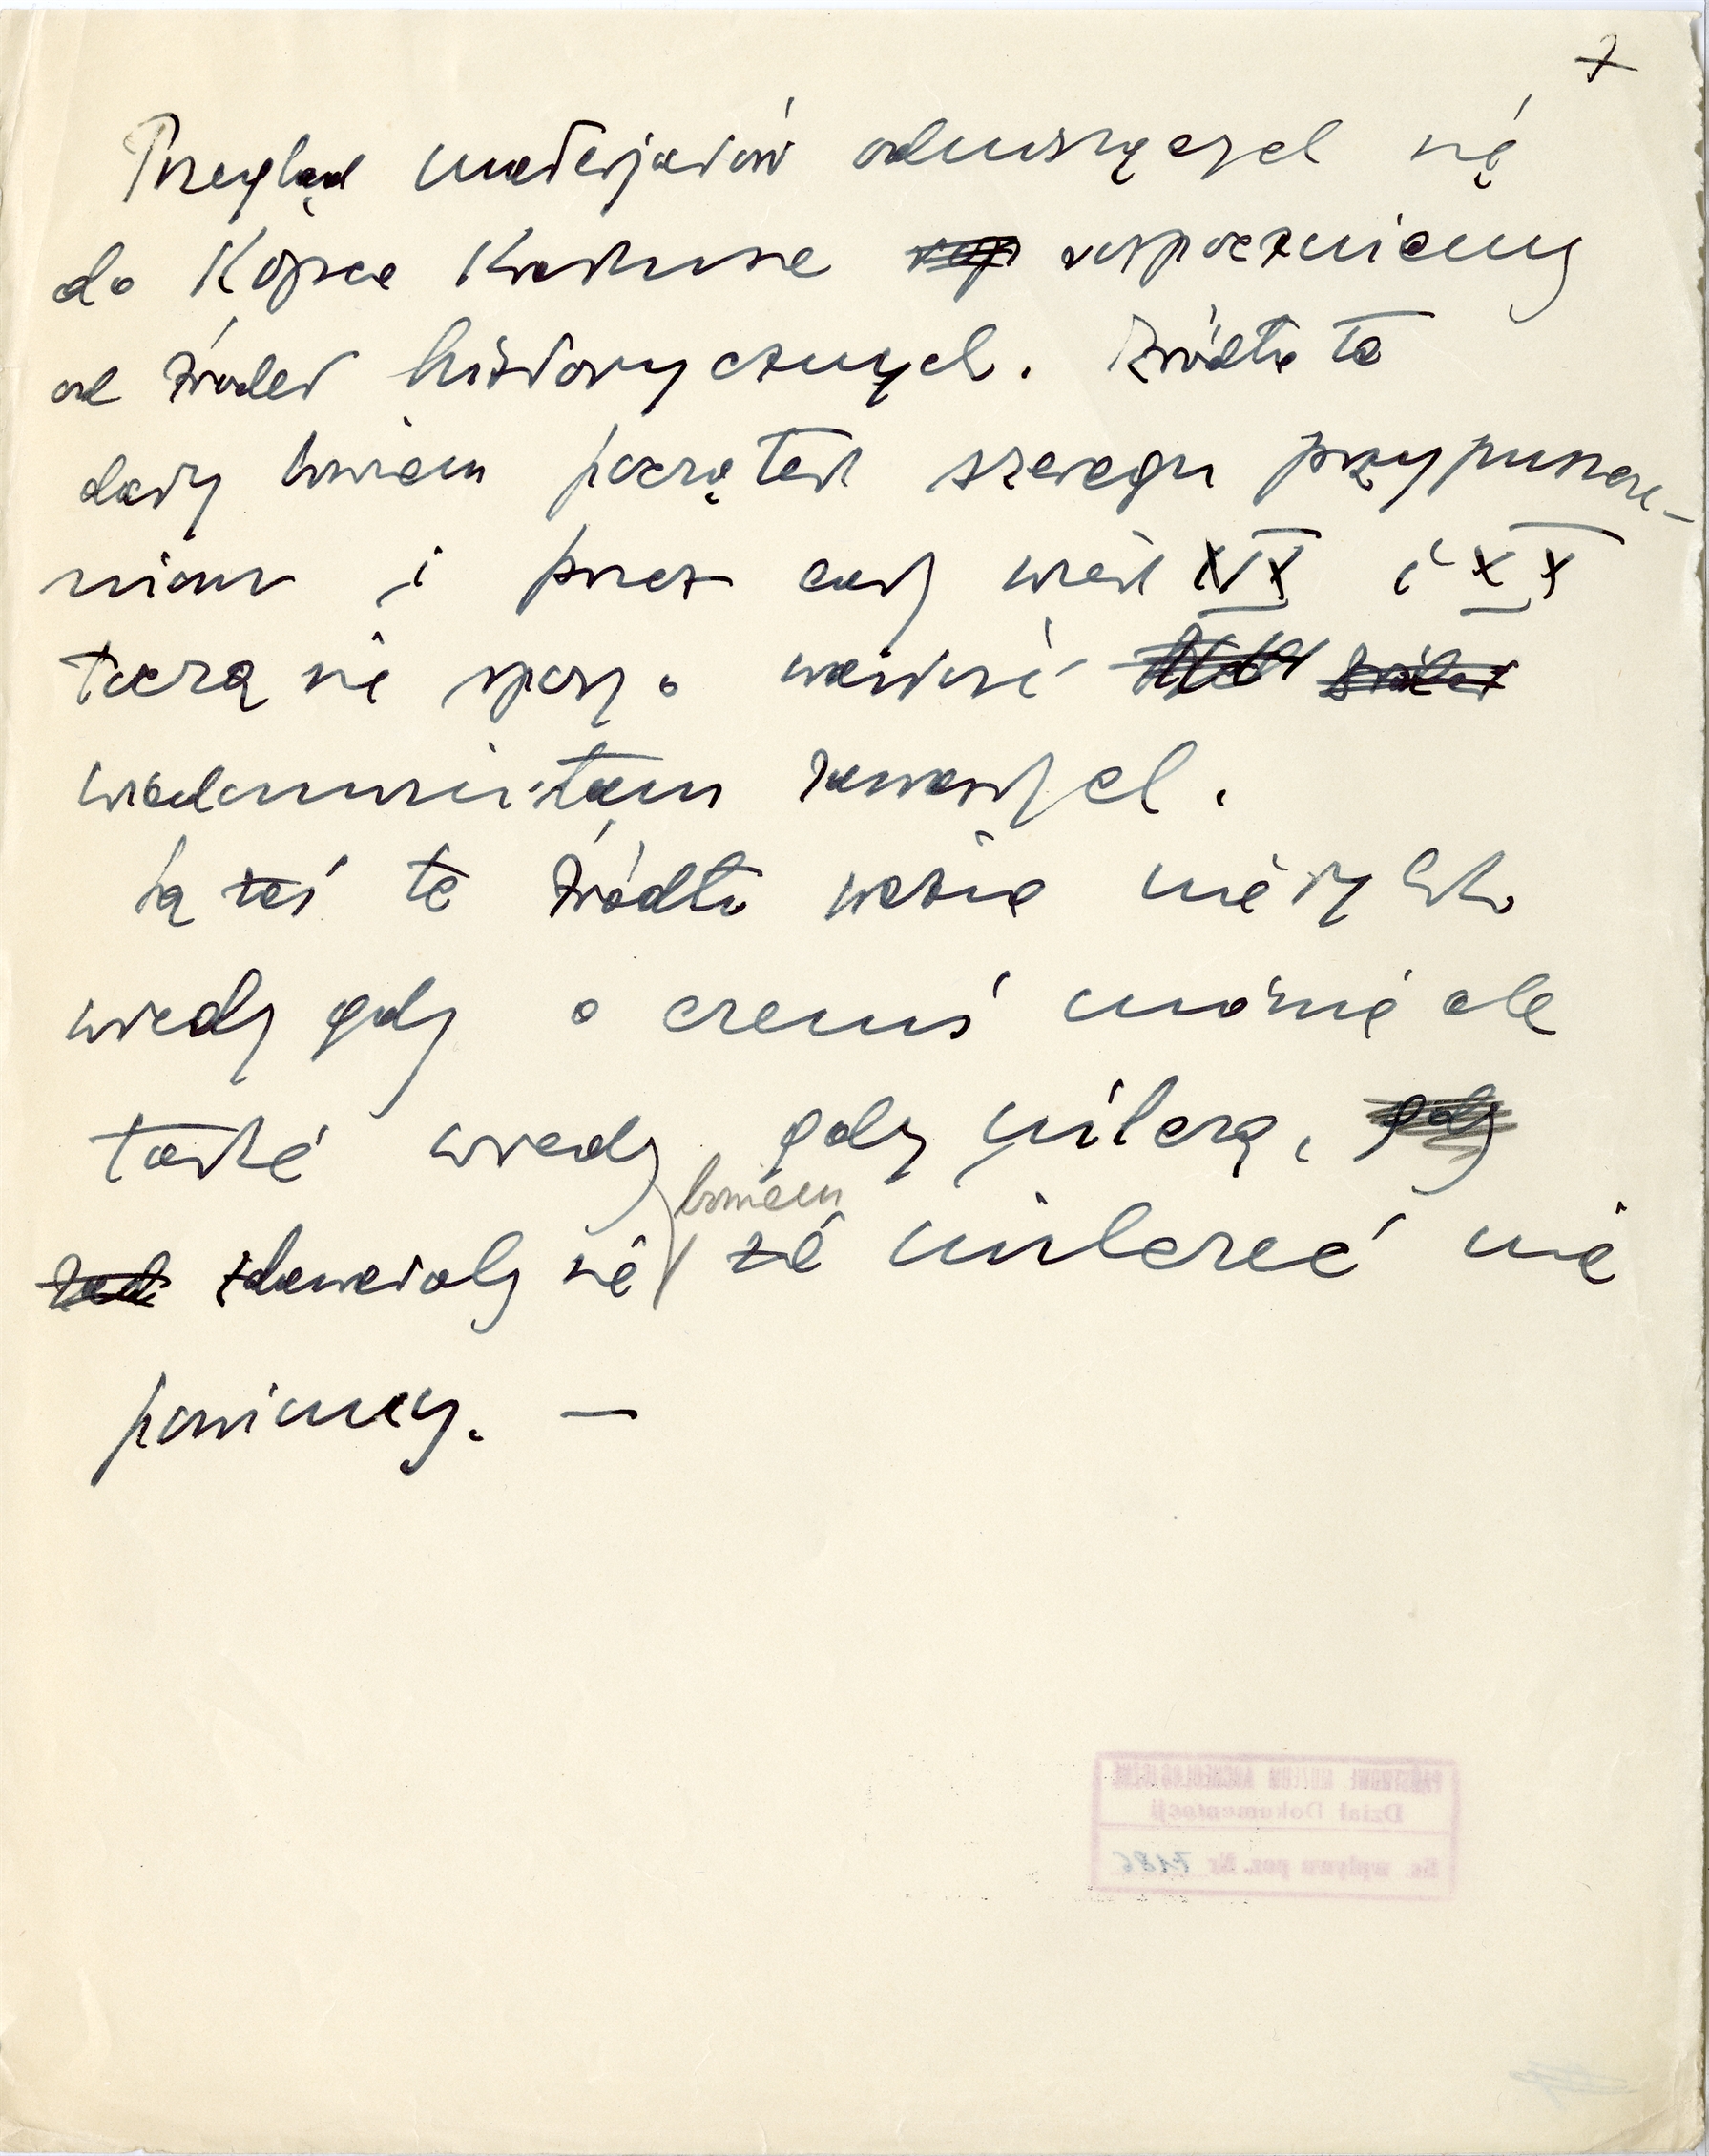 7
Przegląd materjałów odnoszących się
do Kopca Krakusa rozpoczniemy
od źródeł historycznych. Źródła te
dały bowiem początek szeregu przypuszcze-
niom i przez cały wiek XIX i XX
toczą się spory o wartość
wiadomości tam zawartych.
Są zaś te źródła ważne nie tylko
wtedy gdy o czemś mówią ale
także wtedy gdy milczą, gdy
bowiem
zdawałoby się że milczeć nie
powinny. —
PAŃSTWOWE MUZEUM ARCHEOLOGICZNE
Dział Dokumentacji
Ks. wpływu poz. Nr 7186